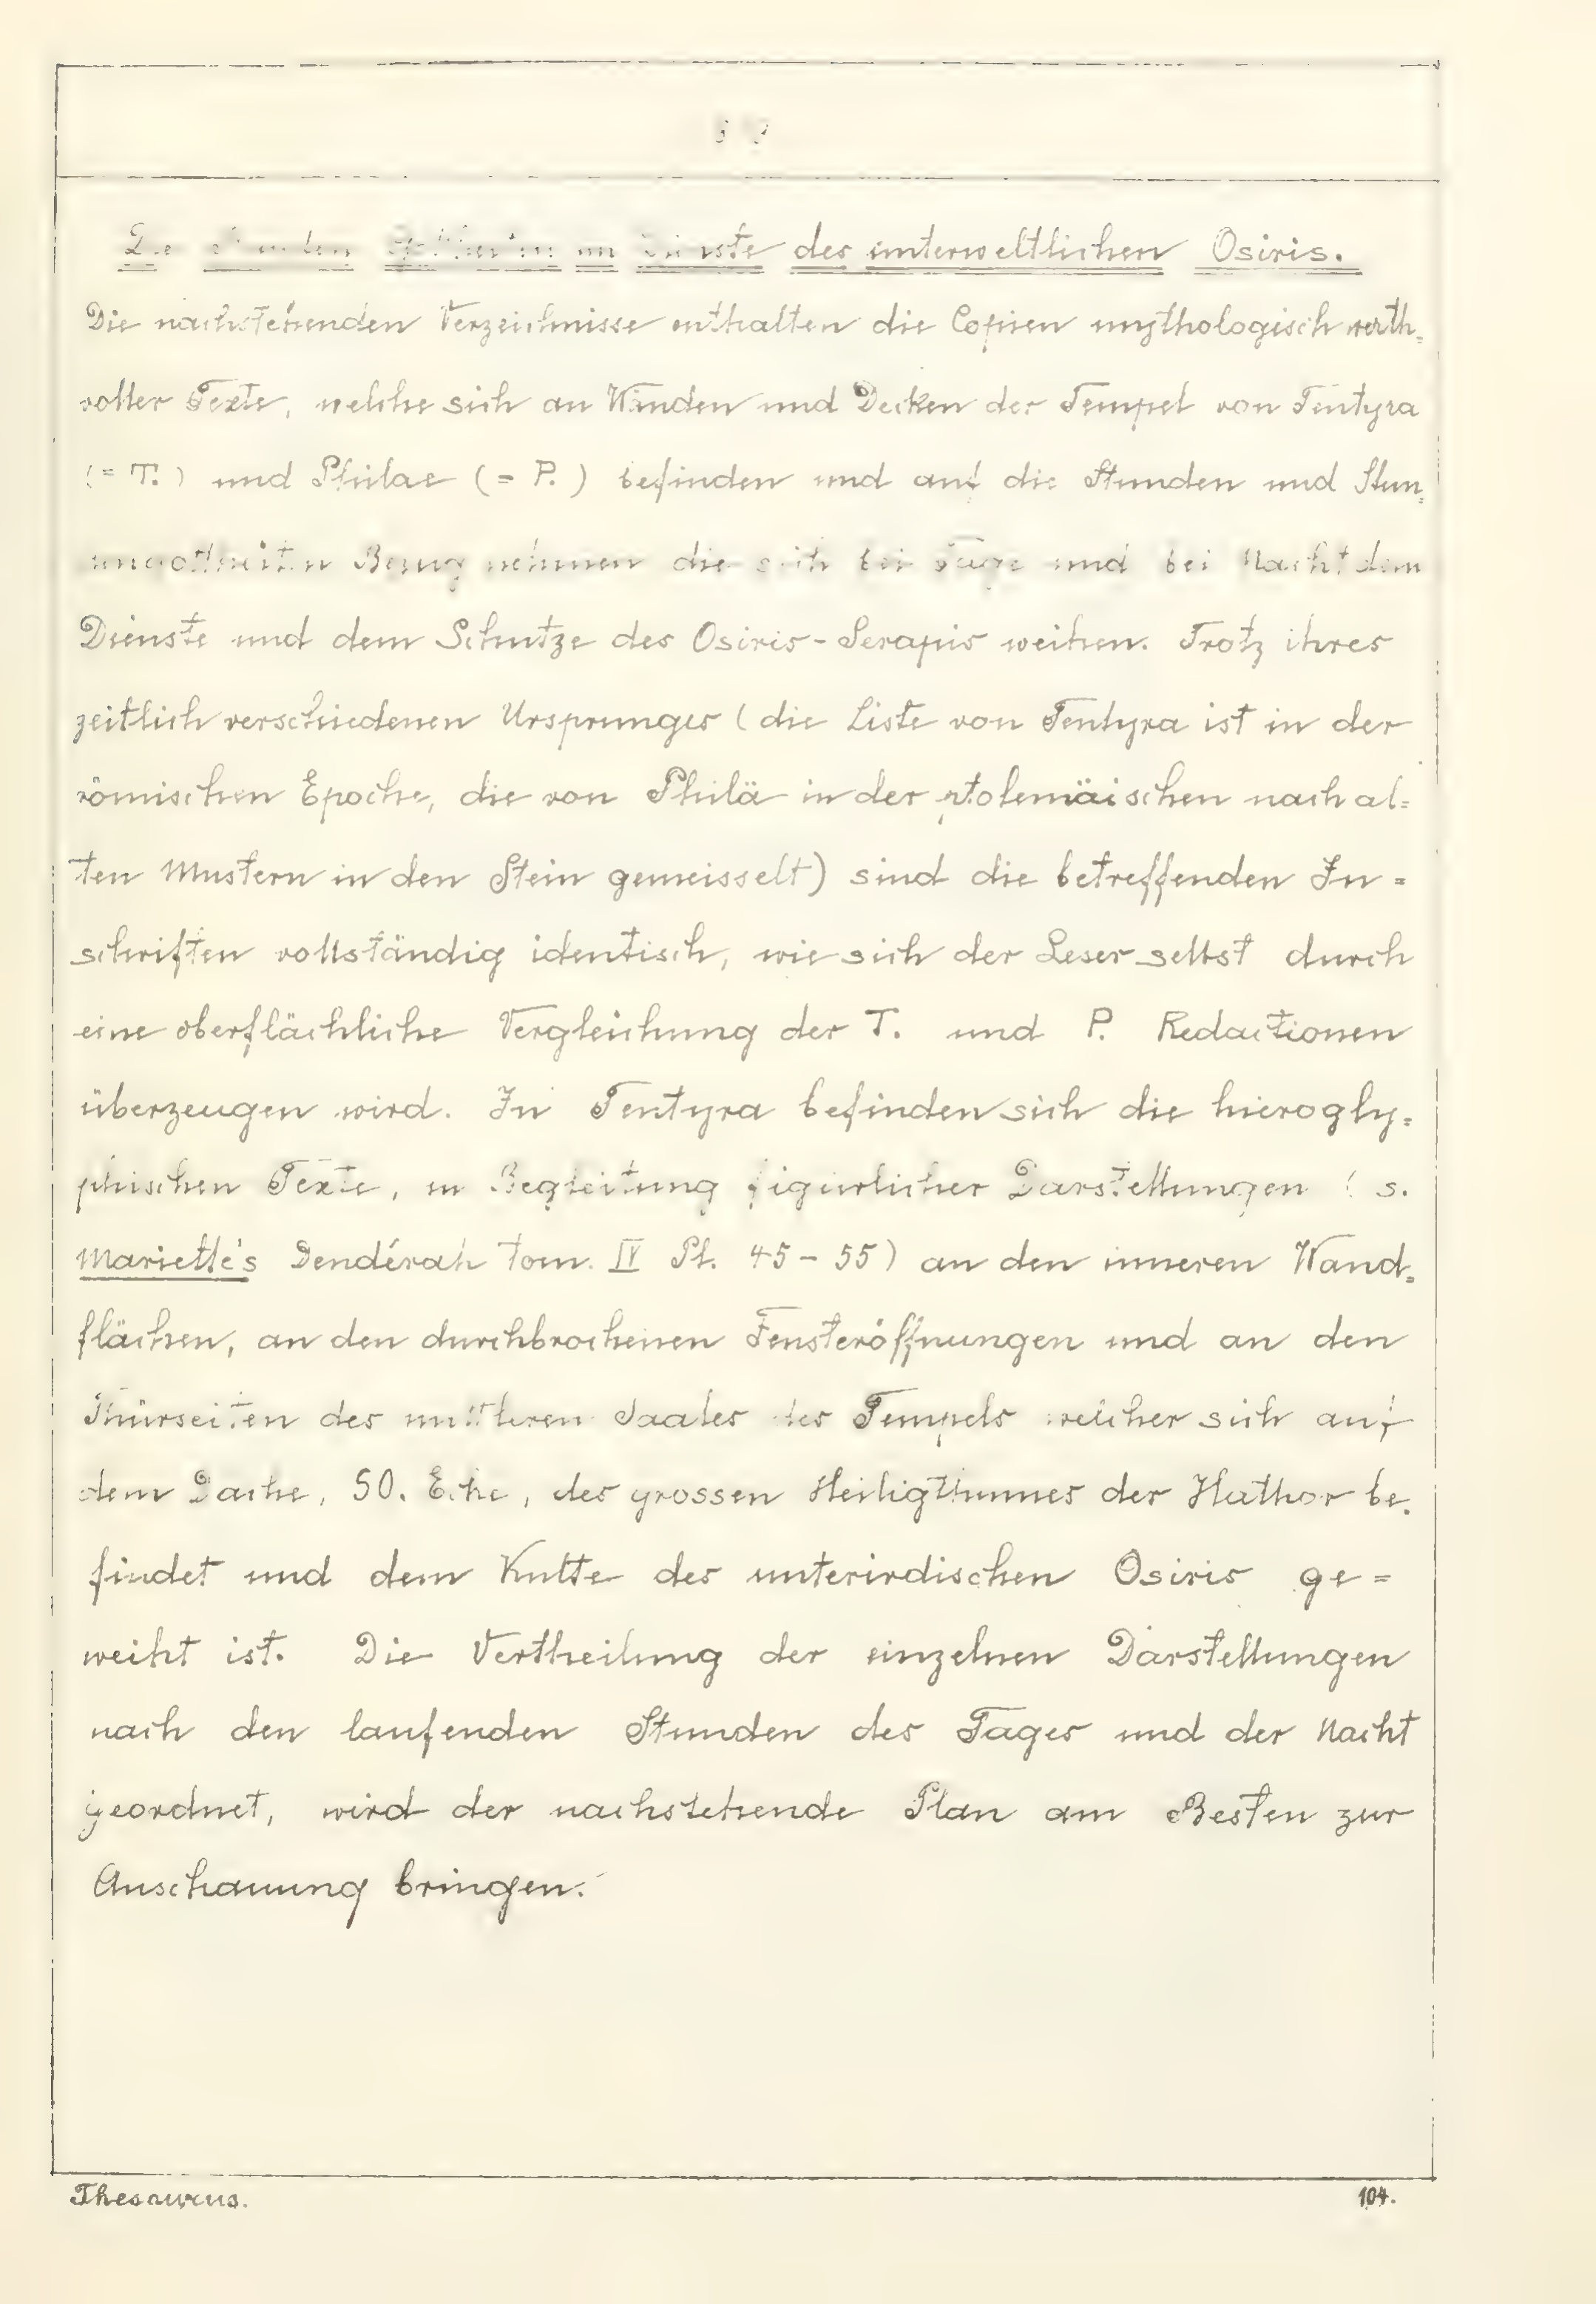 des unterweltlichen Osiris.
Die nachstehenden Verzeichnisse enthalten die Copien mythologisch werth=
voller Texte, welche sich an Wänden und Decken der Tempel von Tentyra
(= T.) und Philae (= P.) befinden und auf die Stunden und Stun=
Bezug nehmen die sich bei Tage und bei Nacht dem
Dienste und dem Schutze des Osiris-Serapis weihen. Trotz ihres
zeitlich verschiedenen Ursprunges (die Liste von Tentyra ist in der
römischen Epoche, die von Philä in der ptolemäischen nach al=
ten Mustern in den Stein gemeisselt) sind die betreffenden In=
schriften vollständig identisch, wie sich der Leser selbst durch
eine oberflächliche Vergleichung der T. und P. Redactionen
überzeugen wird. In Tentyra befinden sich die hierogly=
phischen Texte, in Begleitung figürlicher Darstellungen (s.
Mariette's Dendérah tom. IV Pl. 45-55) an den inneren Wand=
flächen, an den durchbrochenen Fensteröffnungen und an den
Thürseiten des mittleren Saales des Tempels welcher sich auf
dem Dache, SO. Ecke, des grossen Heiligthumes der Hathor be=
findet und dem Kulte des unterirdischen Osiris ge=
weiht ist. Die Vertheilung der einzelnen Darstellungen
nach den laufenden Stunden des Tages und der Nacht
geordnet, wird der nachstehende Plan am Besten zur
Anschauung bringen.
Thesaurus.
104.